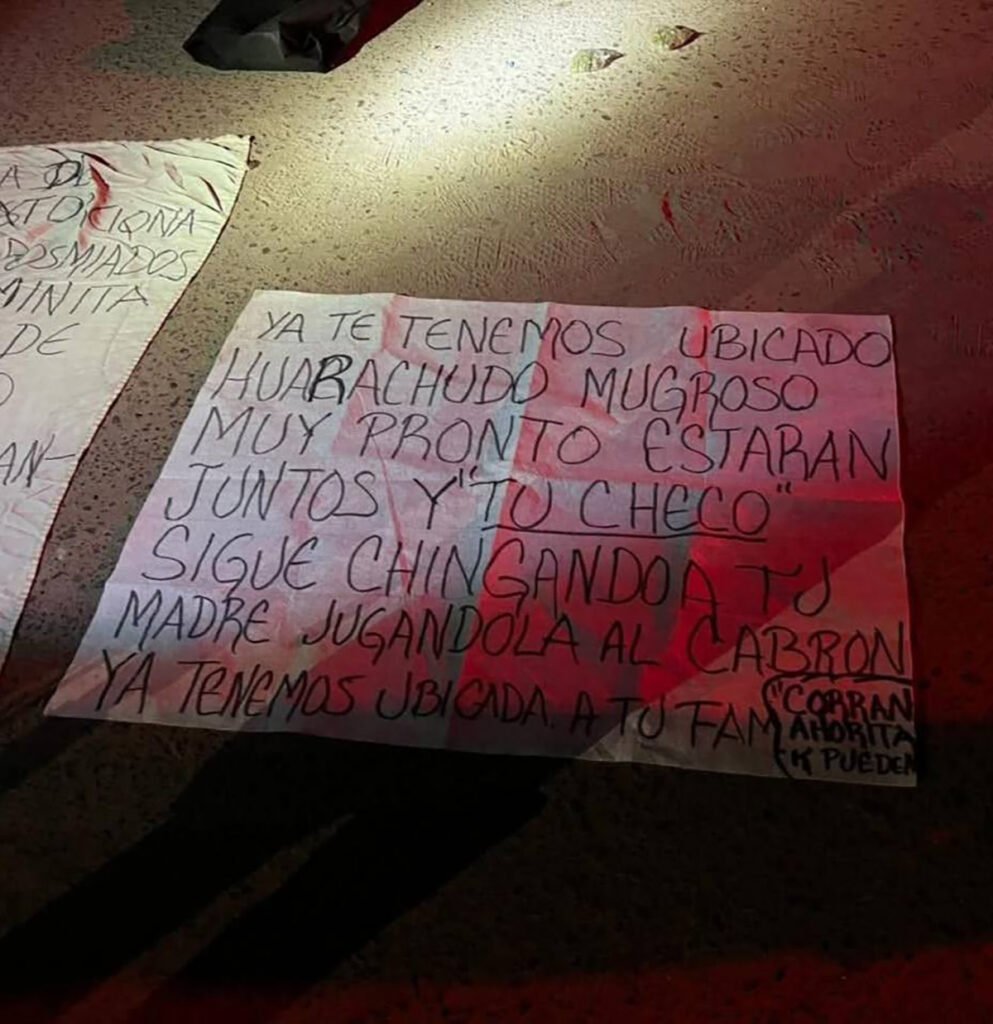 A DE
EXTORCIONA
MINITA
DE
O
AN-
YA TE TENEMOS UBICADO
HUARACHUDO MUGROSO
MUY PRONTO ESTARAN
JUNTOS Y "TU CHECO"
SIGUE CHINGANDO A TU
MADRE JUGANDOLA AL CABRON
YA TENEMOS UBICADA. A TU FAM
("CORRAN
AHORITA
K PUEDEN